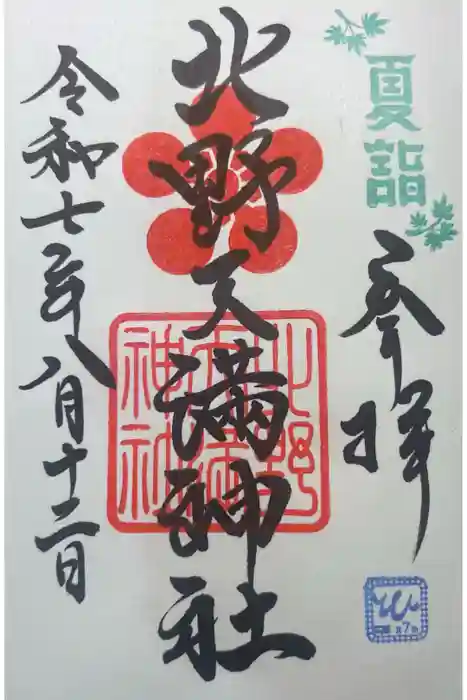 夏詣
参拝
北野天満神社
北野
天満
神社
令和七年八月十二日
第7番